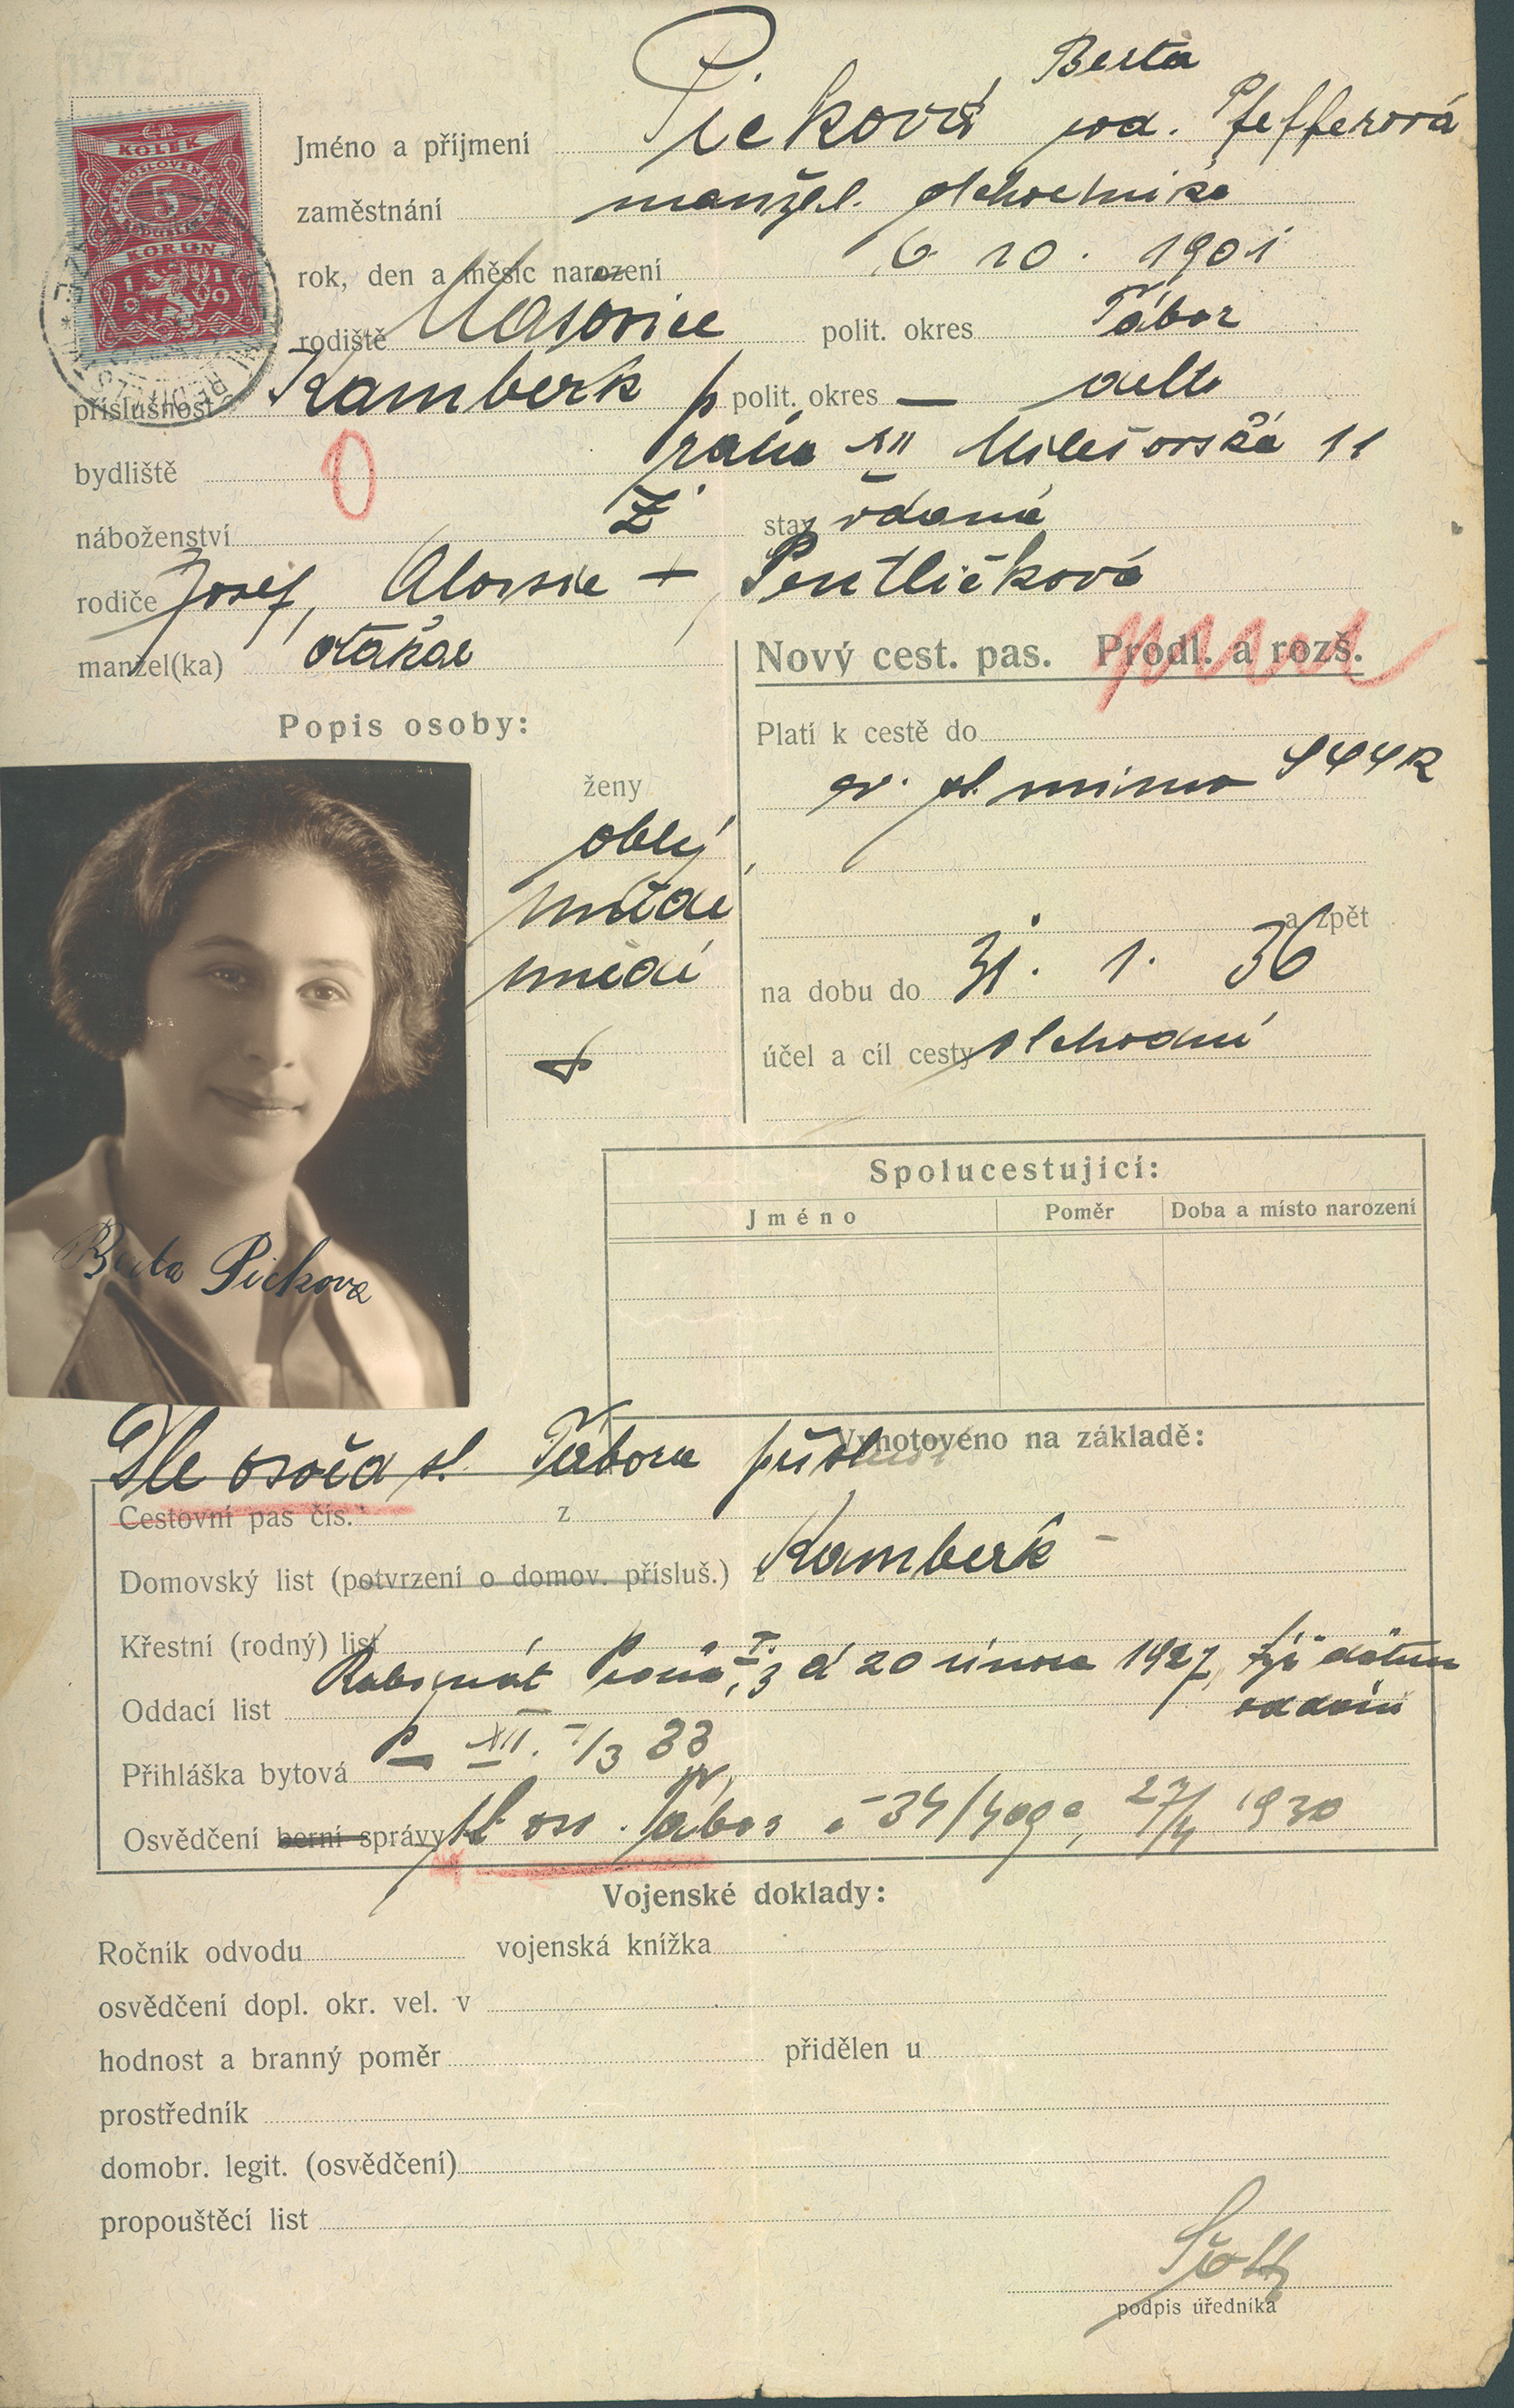 Berta
Jméno a příjmení Picková roz. Pfefferová
zaměstnání manžel. obchodníka
rok, den a měsíc narození 6. 10. 1901
rodiště polit. okres Tábor
příslušnost Kamberk polit. okres — detto
bydliště Praha XII Milešovská 11
náboženství Ž stav vdaná
rodiče Josef, Aloisie + Pentličková
manžel(ka) Otakar
Nový cest. pas. Prodl. a rozš.
Popis osoby:
Platí k cestě do
ženy
mimo SSSR
oblý
hnědé
hnědé
a zpět
na dobu do 31. 1. 36
účel a cíl cesty obchodní
Spolucestující:
Jméno Poměr Doba a místo narození
Berta Pickova
KOLEK
5
KORUN
1919
Vyhotoveno na základě:
Dle osvěd Tábora
Cestovní pas čís. z
Domovský list (potvrzení o domov. přísluš.) z Kamberk
Křestní (rodný) list
Oddací list Rabinát 20 února 1927, týž datum
oddání
Přihláška bytová P — XII. 7/3 33
Osvědčení berní správy Tábor 27/4 1930
Vojenské doklady:
Ročník odvodu vojenská knížka
osvědčení dopl. okr. vel. v
hodnost a branný poměr přidělen u
prostředník
domobr. legit. (osvědčení)
propouštěcí list
podpis úředníka